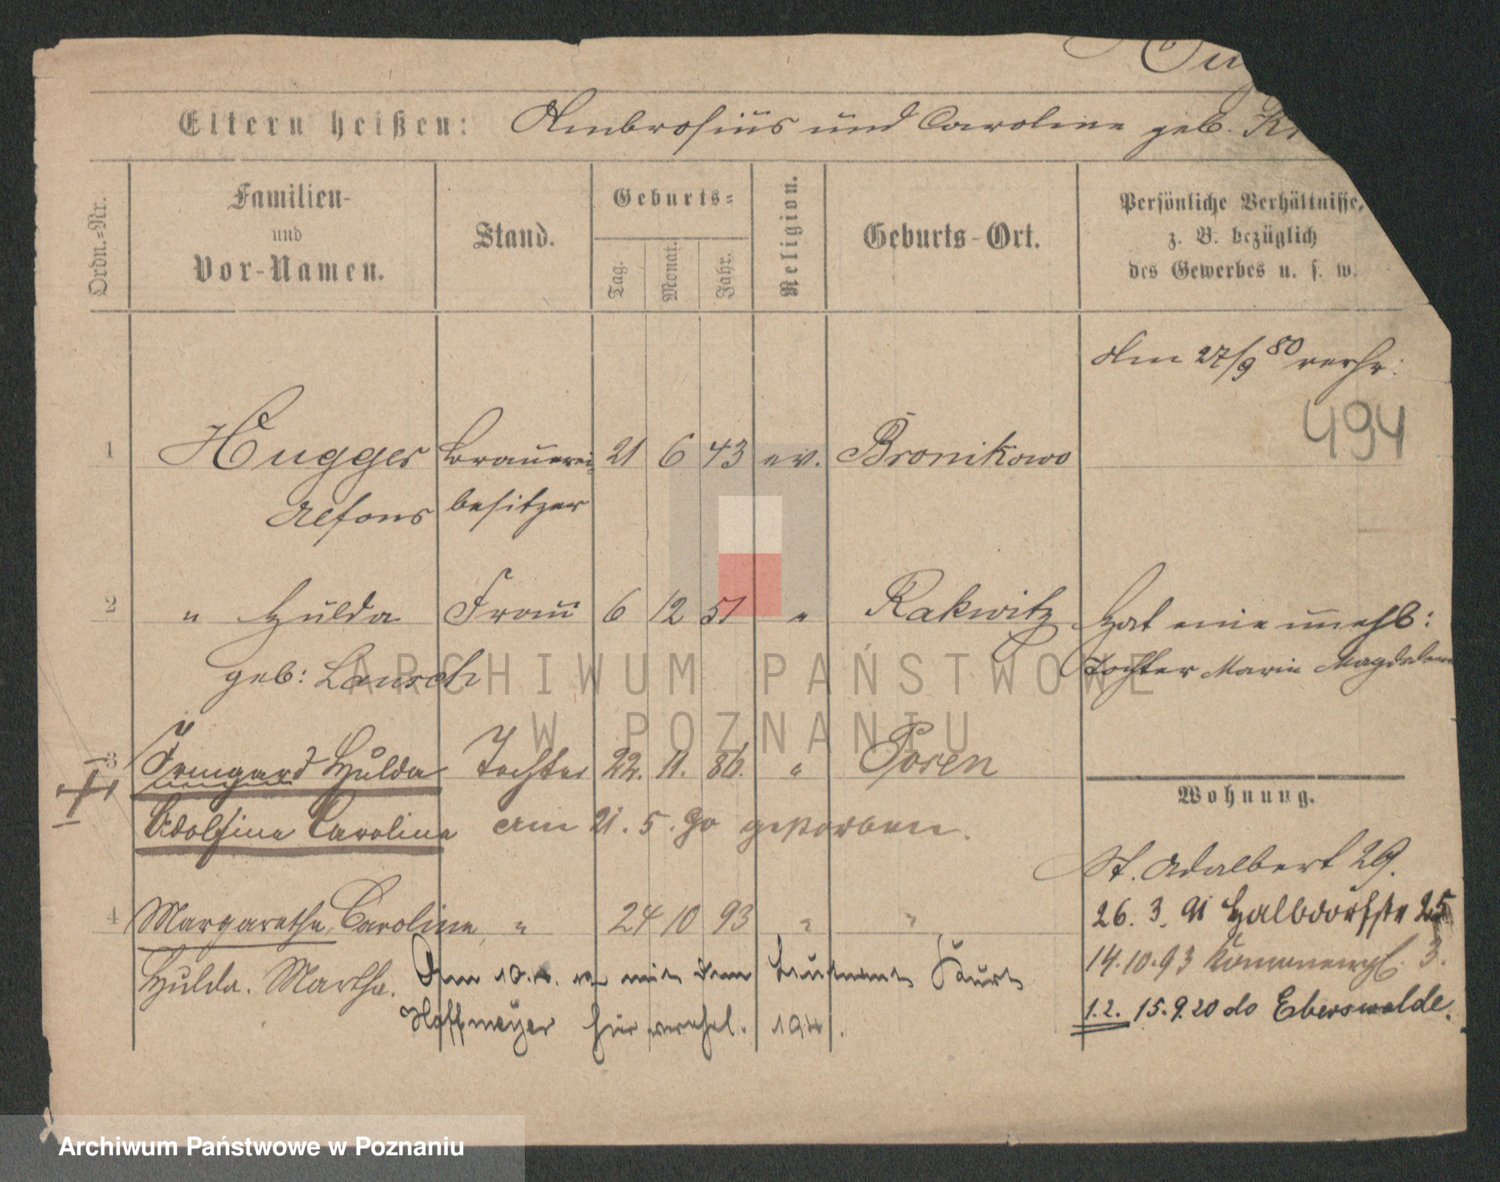 Eltern heißen: Ambrosius und Caroline geb. Kr
Ordn.-Nr.
Familien-
und
Vor-Namen.
Stand.
Geburts-
Tag.
Monat.
Jahr.
Religion.
Geburts-Ort.
Persönliche Verhältnisse,
z. B. bezüglich
des Gewerbes u. s. w.
Am 27/9 80 verh:
494
1 Hugger Brauerei- 21 6 43 ev. Bronikowo
Alfons besitzer
2 " Hulda Frau 6 12 51 " Rakwitz Hat eine unehl:
geb: Lausch Tochter Marie Magdalena
ARCHIWUM PAŃSTWOWE
W POZNANIU
3 Irmgard Hulda Tochter 22. 11. 86. " Posen
Adolfine Caroline am 21. 5. 90 gestorben.
Wohnung.
St. Adalbert 29.
4 Margarethe Caroline " 24 10 93 " "
26. 3. 91 Halbdorfstr 25
Hulda. Martha.
14.10.93 3.
Am 10. mit dem Leutnant Kurt
Hoffmeyer hier verehel.
1.2. 15.9.20 do Eberswalde.
Archiwum Państwowe w Poznaniu